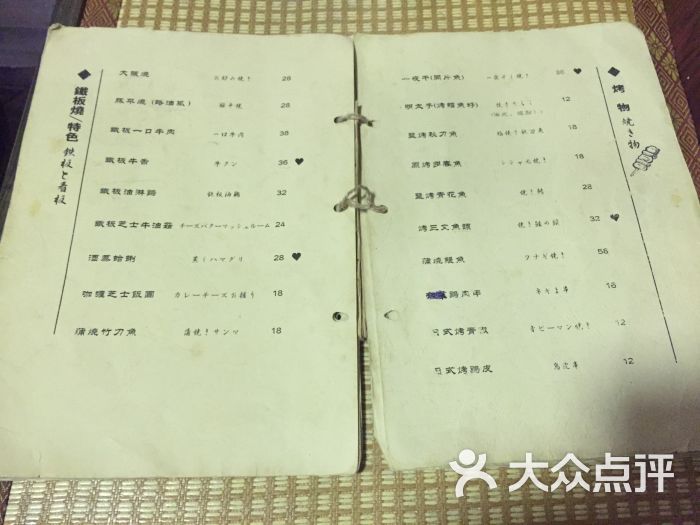 ◆ 鐵板燒/特色 鉄板と看板
大阪燒 お好み焼! 28
豚平燒(豬油風) 豚平焼 28
鐵板一口牛肉 一口牛肉 38
鐵板牛舌 牛タン 36 ♥
鐵板油淋雞 鉄板油鶏 32
鐵板芝士牛油菇 チーズバターマッシュルーム 24
酒蒸蛤蜊 蒸しハマグリ 28 ♥
咖喱芝士飯團 カレーチーズお握り 18
蒲燒竹刀魚 蒲焼!サンマ 18
◆ 烤 物 焼き物
一夜干(開片魚) 一夜干し焼! 36 ♥
明太子(烤鱈魚籽) 12
鹽烤秋刀魚 塩焼!秋刀魚 18
原烤多春魚 シシャモ焼! 18
鹽烤青花魚 焼!鯖 28
烤三文魚頭 焼!鮭の頭 32 ♥
蒲燒鰻魚 ウナギ焼! 56
雞皮串 ネギま串 16
日式烤青椒 青ピーマン焼! 12
日式烤雞皮 鳥皮串 12
大众点评